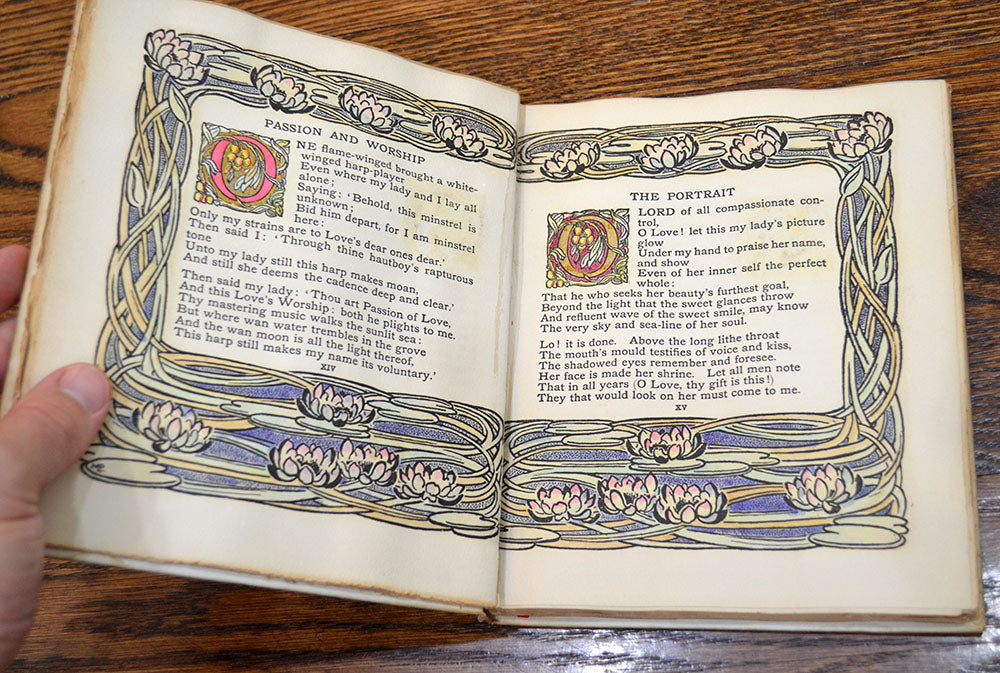 PASSION AND WORSHIP
ONE flame-winged brought a white-
winged harp-player
Even where my lady and I lay all
alone;
Saying: 'Behold, this minstrel is
unknown;
Bid him depart, for I am minstrel
here:
Only my strains are to Love's dear ones dear.'
Then said I: 'Through thine hautboy's rapturous
tone
Unto my lady still this harp makes moan,
And still she deems the cadence deep and clear.'
Then said my lady: 'Thou art Passion of Love,
And this Love's Worship: both he plights to me.
Thy mastering music walks the sunlit sea:
But where wan water trembles in the grove
And the wan moon is all the light thereof,
This harp still makes my name its voluntary.'
XIV
THE PORTRAIT
O LORD of all compassionate con-
trol,
O Love! let this my lady's picture
glow
Under my hand to praise her name,
and show
Even of her inner self the perfect
whole:
That he who seeks her beauty's furthest goal,
Beyond the light that the sweet glances throw
And refluent wave of the sweet smile, may know
The very sky and sea-line of her soul.
Lo! it is done. Above the long lithe throat
The mouth's mould testifies of voice and kiss,
The shadowed eyes remember and foresee.
Her face is made her shrine. Let all men note
That in all years (O Love, thy gift is this!)
They that would look on her must come to me.
XV